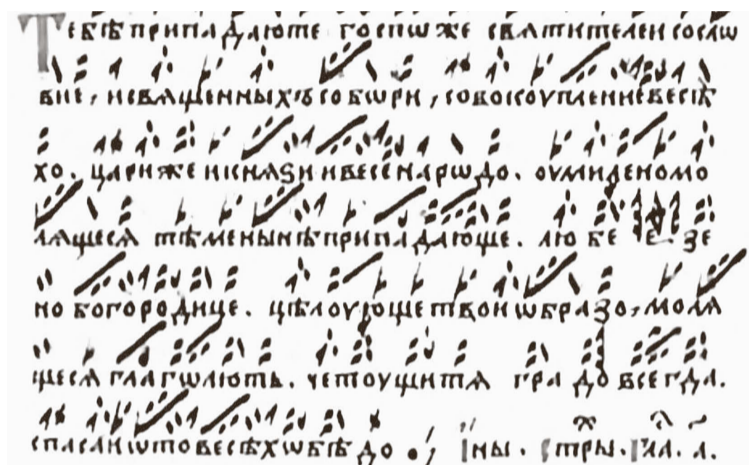 Тебѣ припадаюте госпѡже святителеи сослѡ
вие, исвященныхъ собѡри, совокоупление весѣ
хо. царижеикнѧѕи ивесе нарѡдо. оумиленомо
лѧщесѧ тѣменынѣприпадающе. любе е зе
но богородице. цѣлоующе твои ѡбразо, молѧ
щесѧ глагѡлють. четоущитѧ градо всегда.
спасаи ѿтовесѣхѡбѣдо. ины. стры. гла. а.